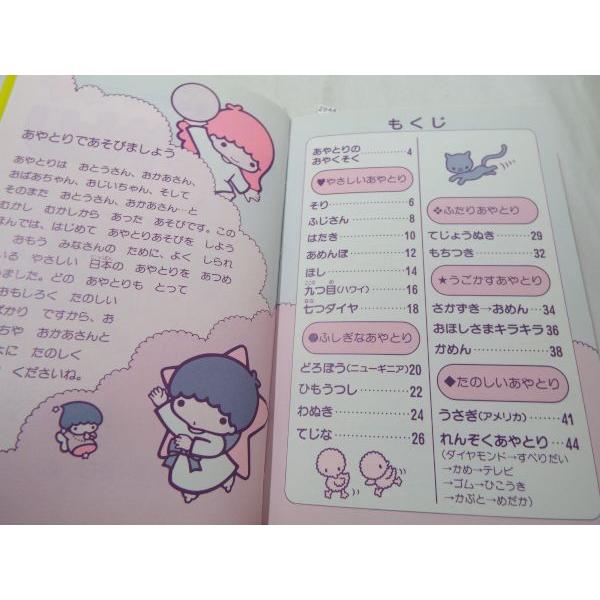 あやとりであそびましょう
あやとりは おとうさん、おかあさん、
おばあちゃん、おじいちゃん、そして
そのまた おとうさん、おかあさん…と
むかし むかしから あった あそびです。この
ほんでは、はじめて あやとりあそびを しよう
おもう みなさんの ために、よく しられ
いる やさしい 日本の あやとりを あつめ
ました。どの あやとりも とって
おもしろく たのしい
ばかり ですから、お
ちや おかあさんと
よに たのしく
くださいね。
もくじ
あやとりの
おやくそく……4
♥やさしいあやとり
そり……6
ふじさん……8
はたき……10
あめんぼ……12
ほし……14
九つ目(ハワイ)……16
七つダイヤ……18
ふしぎなあやとり
どろぼう(ニューギニア)20
ひもうつし……22
わぬき……24
てじな……26
✤ふたりあやとり
てじょうぬき……29
もちつき……32
★うごかすあやとり
さかずき→おめん…34
おほしさまキラキラ 36
かめん……38
◆たのしいあやとり
うさぎ(アメリカ)……41
れんぞくあやとり…44
(ダイヤモンド→すべりだい
→かめ→テレビ
→ゴム→ひこうき
→かぶと→めだか)